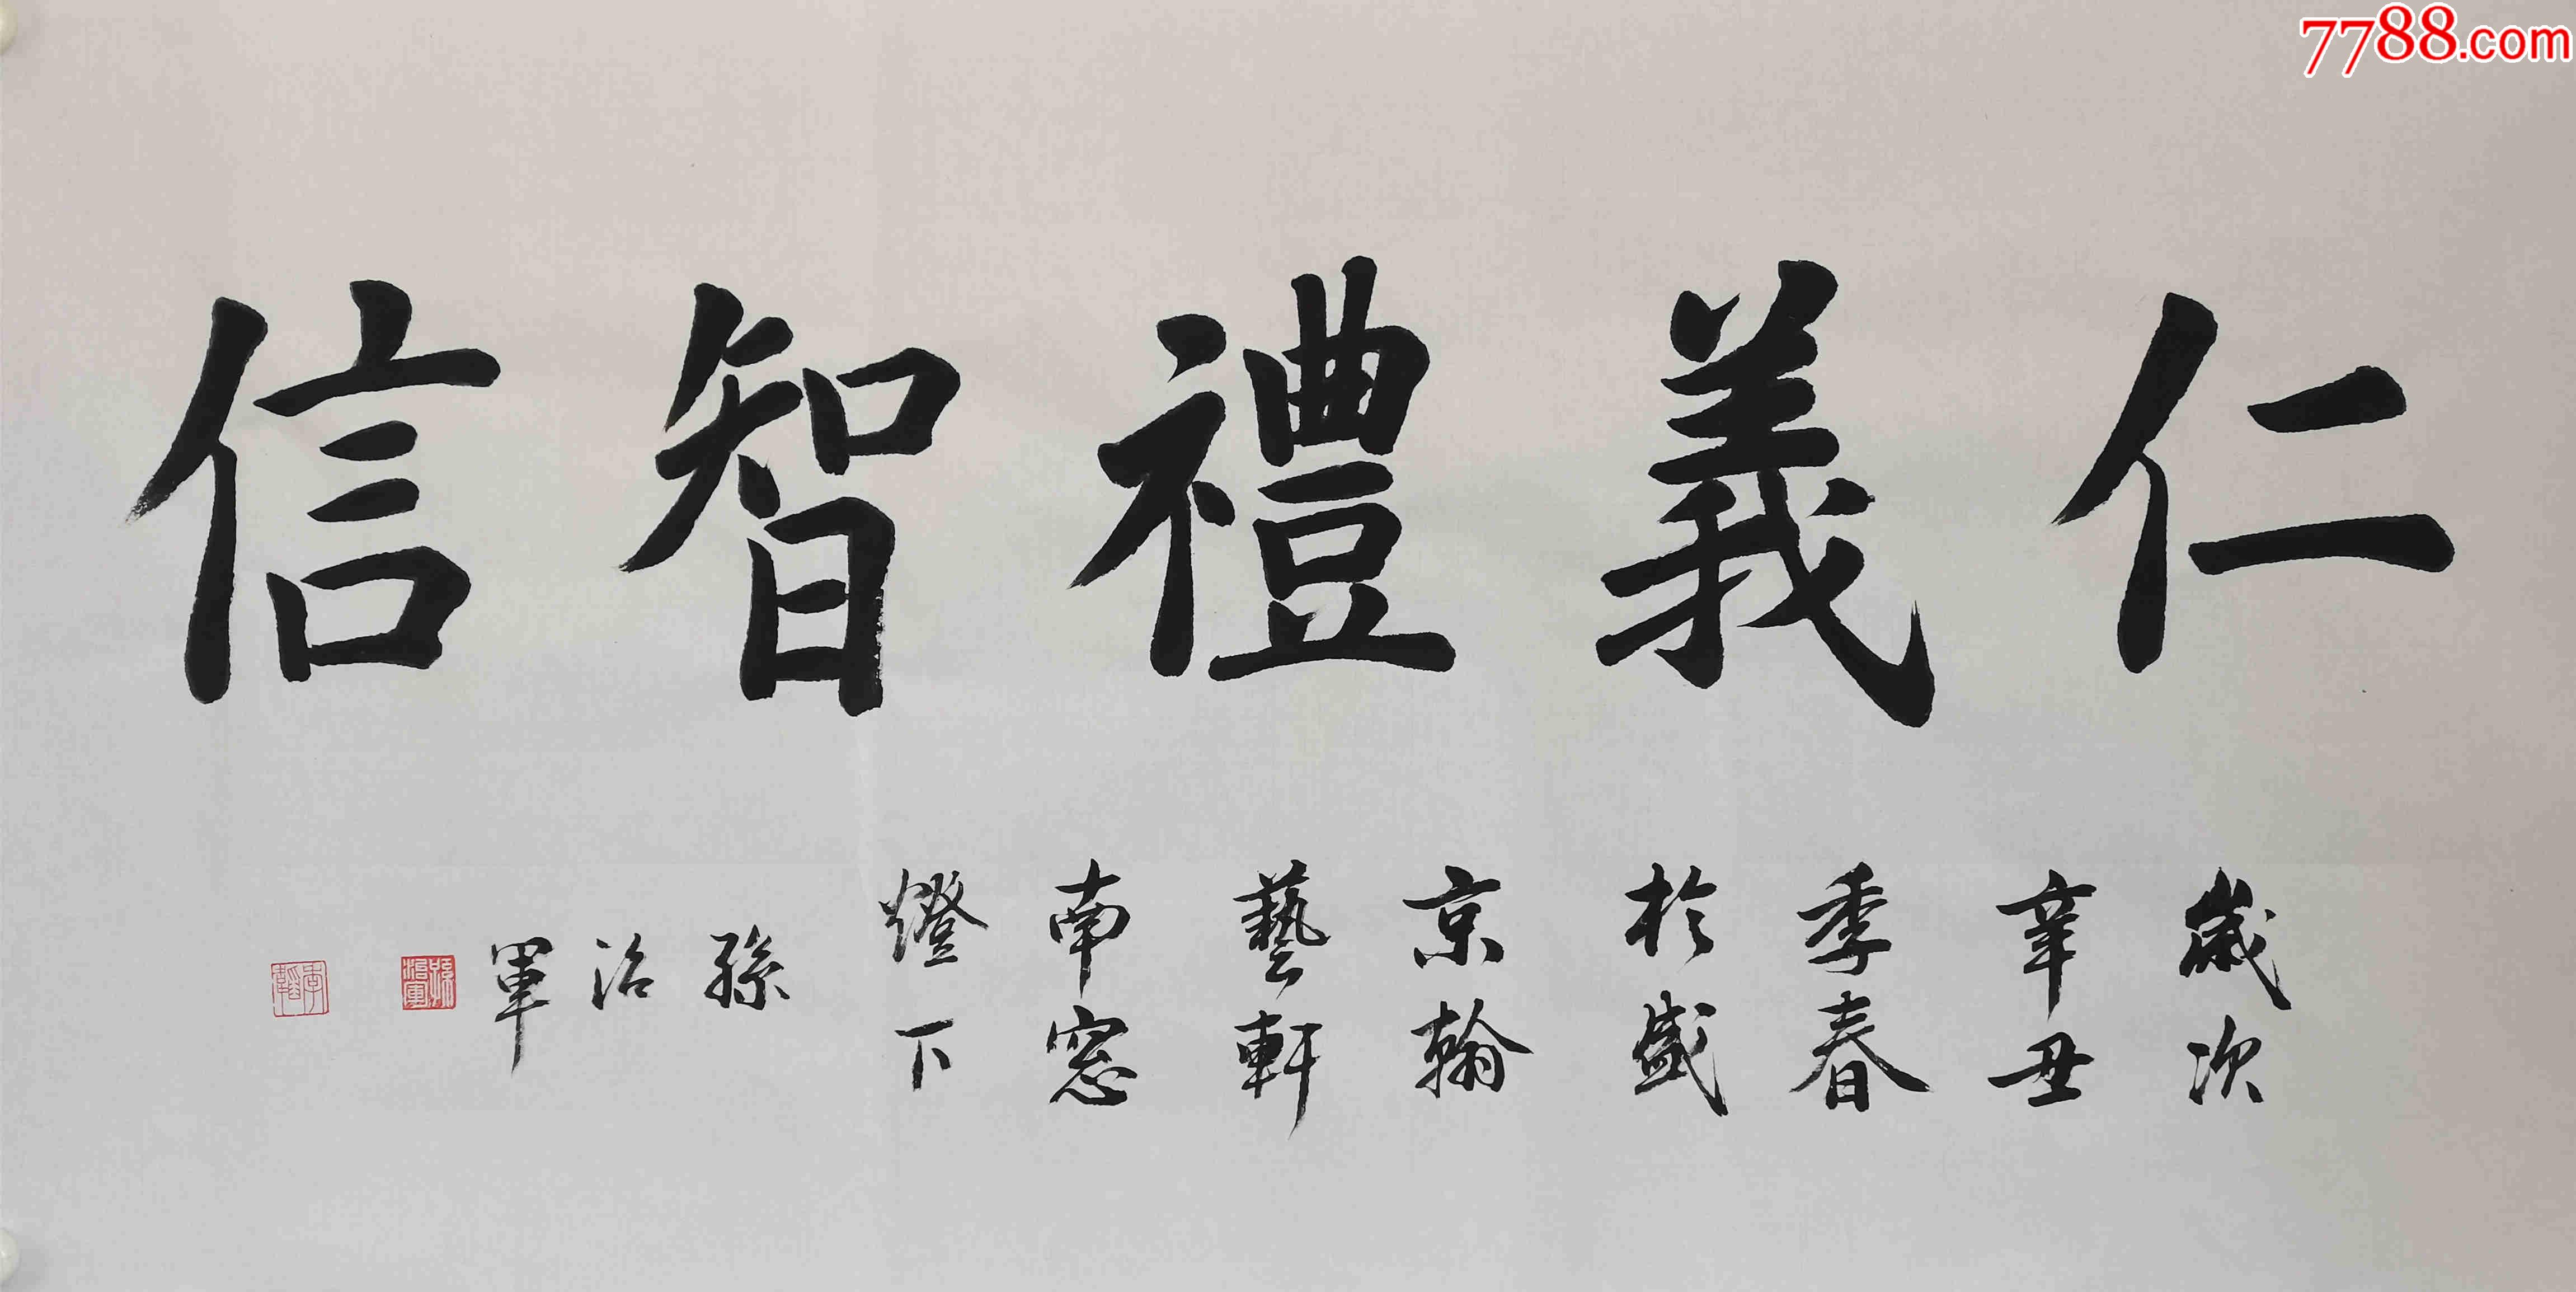 仁義禮智信
歲次
辛丑
季春
於盛
京翰
藝軒
南窓
燈下
孫治軍
7788.com